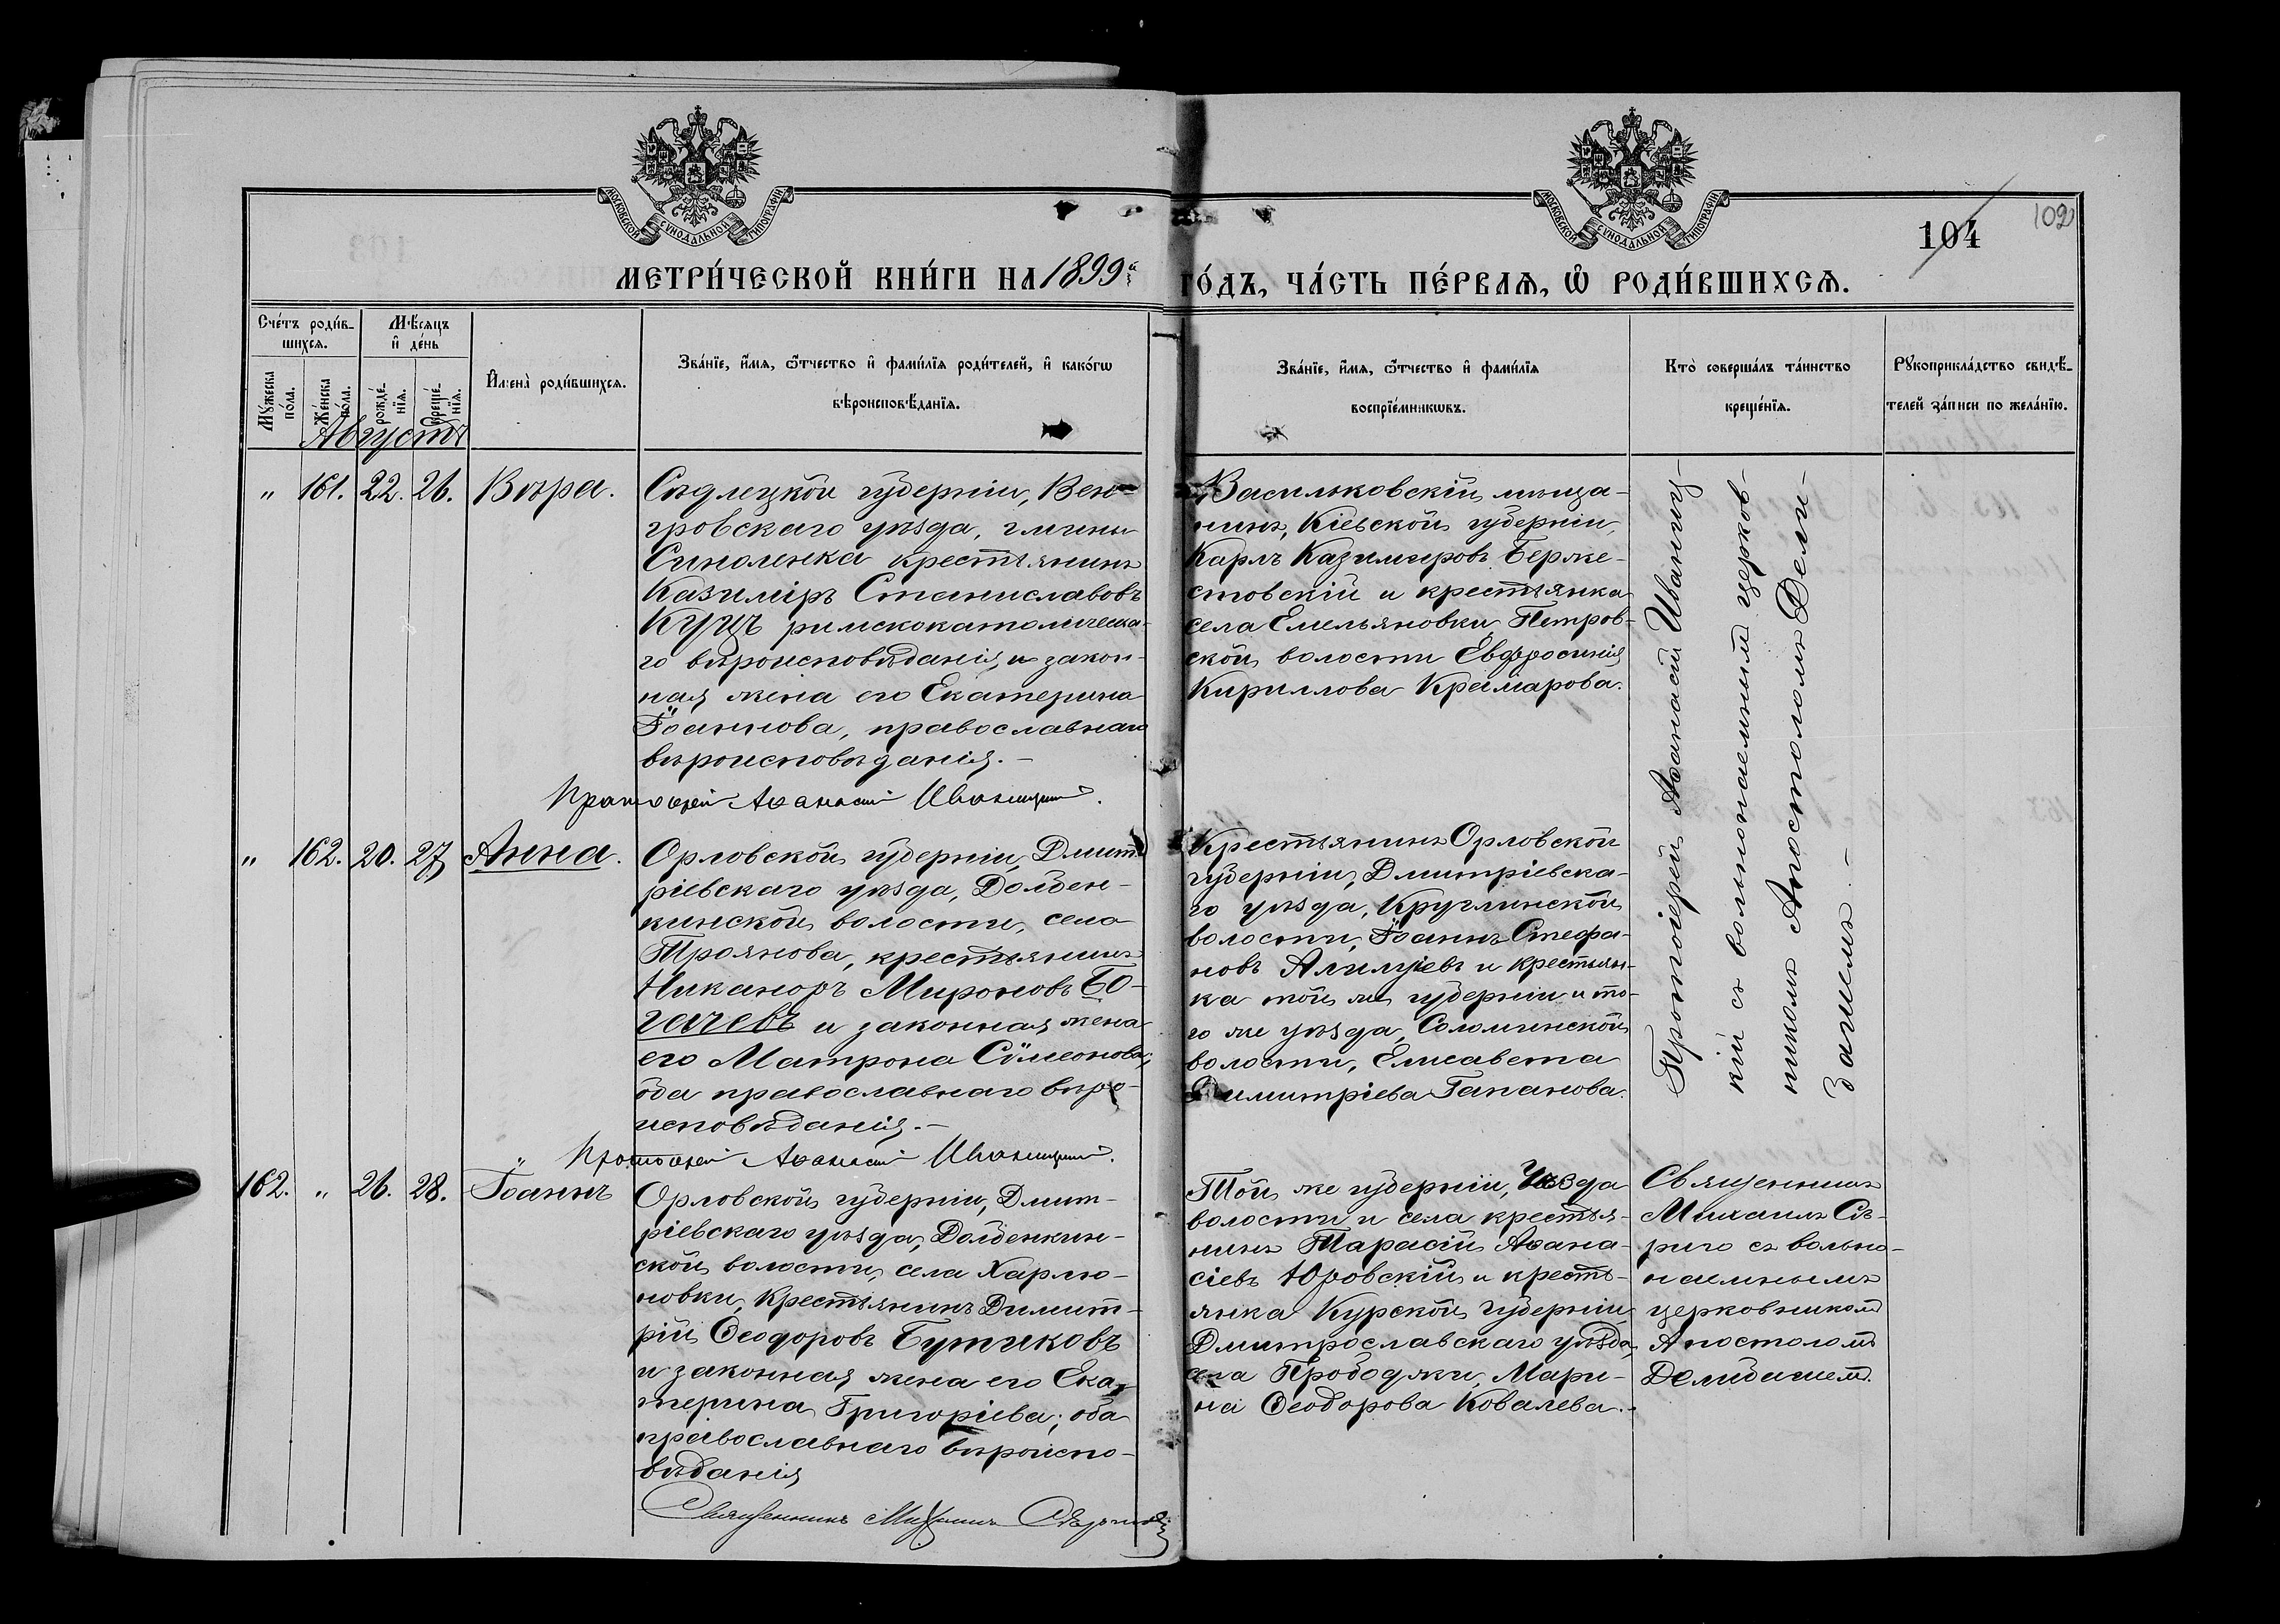 МОСКОВСКОЙ СѴНОДАЛЬНОЙ ТИПОГРАФІИ
МОСКОВСКОЙ СѴНОДАЛЬНОЙ ТИПОГРАФІИ
104
102
МЕТРИ́ЧЕСКОЙ КНИ́ГИ НА 1899й ГО́ДЪ, ЧА́СТЬ ПЕ́РВАѦ, Ѡ҆ РОДИ́ВШИХСѦ.
Сче́тъ роди́в-
шихсѧ.
Мꙋ́жеска
по́ла.
Же́нска
по́ла.
Мѣ́сѧцъ
и҆ де́нь
рожде́-
нїѧ.
креще́-
нїѧ.
И҆мена̀ роди́вшихсѧ.
Зва́нїе, и҆́мѧ, ѻ҆́тчество и҆ фами́лїѧ роди́телей, и҆ како́гѡ
вѣроисповѣ́данїѧ.
Зва́нїе, и҆́мѧ, ѻ҆́тчество и҆ фами́лїѧ
воспрїе́мникѡвъ.
Кто̀ соверша́лъ та́инство
креще́нїѧ.
Рꙋкоприкла́дство свидѣ́-
телей за́писи по жела́нїю.
Августъ
" 161. 22. 26. Вѣра.
Сѣдлецкой губерніи, Вен-
гровскаго уѣзда, гмины
Синоленка крестьянинъ
Казиміръ Станиславовъ
Куцъ римскокатолическа-
го вѣроисповѣданія, и закон-
ная жена его Екатерина
Іоаннова, православнаго
вѣроисповѣданія.-
Протоіерей Аѳанасій Иваницкій.
Васильковскій мѣща-
нинъ, Кіевской губерніи,
Карлъ Казимировъ Берже-
стовскій и крестьянка
села Емельяновки Петров-
ской волости Евфросинія
Кириллова Крамарова.
Протоіерей Аѳанасій Иваниц-
кій съ вольнонаемнымъ церков-
никомъ Апостоломъ Дели-
зашемъ.-
" 162. 20. 27. Анна.
Орловской губерніи, Дмит-
ріевскаго уѣзда, Долбен-
кинской волости, села
Троянова, крестьянинъ
Никаноръ Мироновъ Бо-
гачевъ и законная жена
его Матрона Сѵмеонова,
оба православнаго вѣро-
исповѣданія.-
Протоіерей Аѳанасій Иваницкій.
Крестьянинъ Орловской
губерніи, Дмитріевска-
го уѣзда, Круглинской
волости, Іоаннъ Стефа-
новъ и крестьян-
ка той же губерніи и то-
го же уѣзда, Соломинской
волости, Елисавета
Димитріева Гапанова.
162. " 26. 28. Іоаннъ
Орловской губерніи, Дмит-
ріевскаго уѣзда, Долбенкин-
ской волости, села Харла-
новки, крестьянинъ Димит-
рій Ѳеодоровъ Бутиковъ
и законная жена его Ека-
терина Григоріева; оба
православнаго вѣроиспо-
вѣданія
Священникъ Михаилъ
Той же губерніи, Уѣзда
волости и села крестья-
нинъ Тарасій Аѳана-
сіевъ Юровскій и кресть-
янка Курской губерніи
Дмитрославскаго уѣзда,
села Мари-
на Ѳеодорова Ковалева.
Священникъ
Михаилъ Сѣ-
риго съ вольно-
наемнымъ
церковникомъ
Апостоломъ